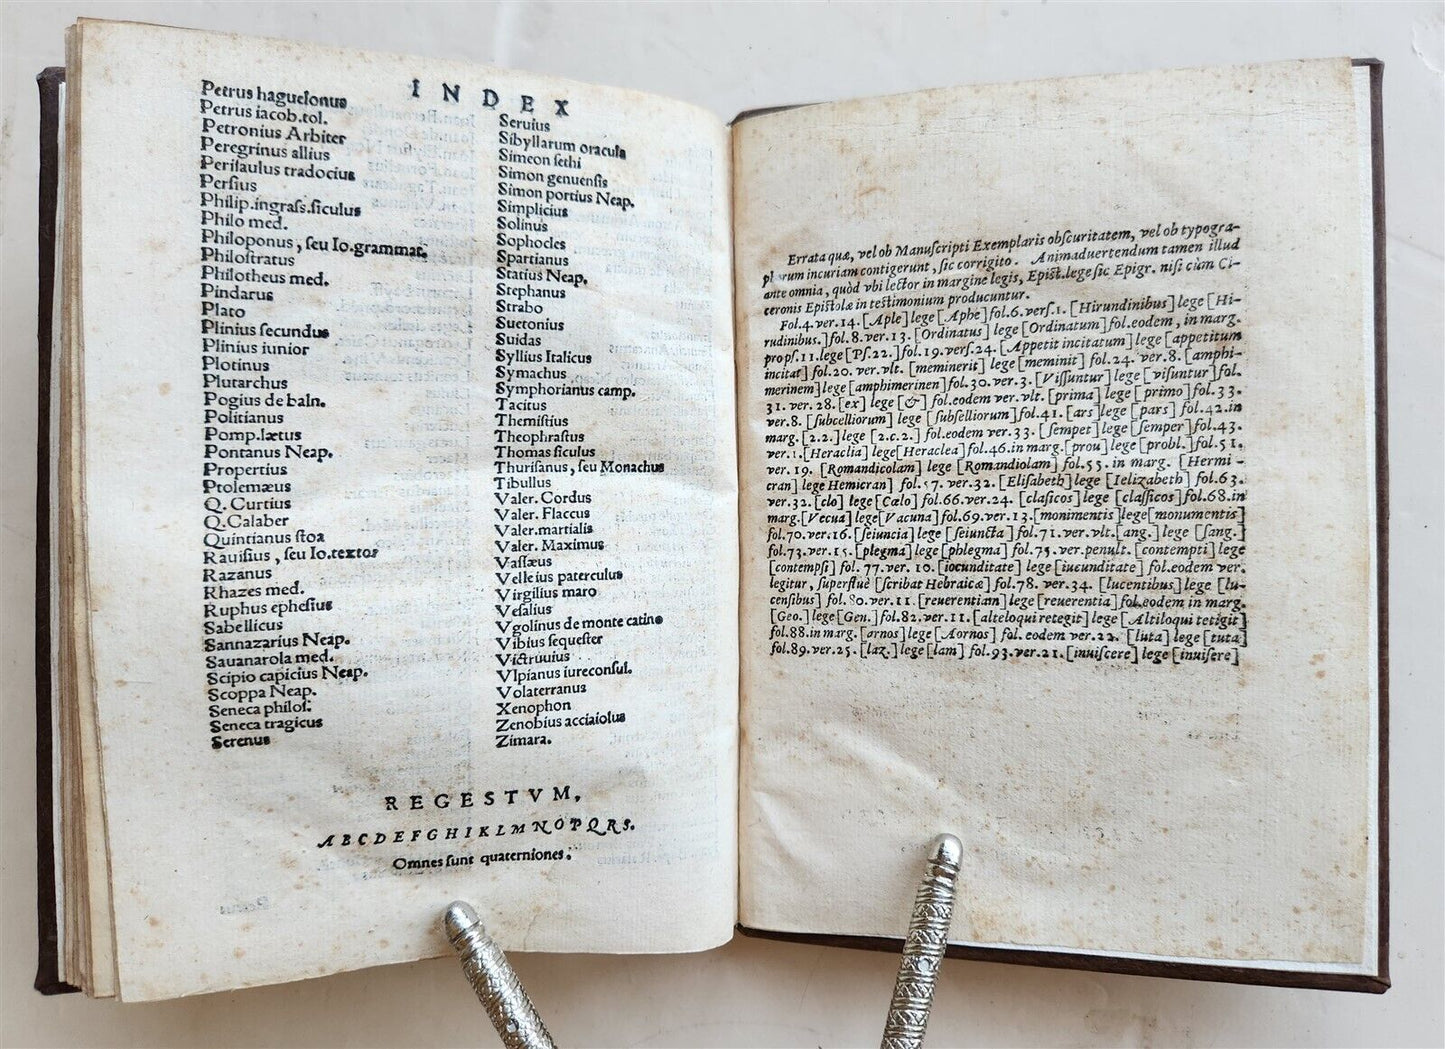 INDEX
Petrus haguelonus
Petrus iacob.tol.
Petronius Arbiter
Peregrinus allius
Perisaulus tradocius
Persius
Philip.ingrass.siculus
Philo med.
Philoponus, seu Io.grammat.
Philostratus
Philotheus med.
Pindarus
Plato
Plinius secundus
Plinius iunior
Plotinus
Plutarchus
Pogius de baln.
Politianus
Pomp.lætus
Pontanus Neap.
Propertius
Ptolemæus
Q. Curtius
Q.Calaber
Quintianus stoa
Rauisius, seu Io.textor
Razanus
Rhazes med.
Ruphus ephesius
Sabellicus
Sannazarius Neap.
Sauanarola med.
Scipio capicius Neap.
Scoppa Neap.
Seneca philos.
Seneca tragicus
Serenus
Seruius
Sibyllarum oracula
Simeon sethi
Simon genuensis
Simon portius Neap.
Simplicius
Solinus
Sophocles
Spartianus
Statius Neap.
Stephanus
Strabo
Suetonius
Suidas
Syllius Italicus
Symachus
Symphorianus camp.
Tacitus
Themistius
Theophrastus
Thomas siculus
Thurisanus, seu Monachus
Tibullus
Valer. Cordus
Valer. Flaccus
Valer.martialis
Valer. Maximus
Vaslæus
Velleius paterculus
Virgilius maro
Vesalius
Vgolinus de monte catino
Vibius sequester
Victruuius
Vlpianus iureconsul.
Volaterranus
Xenophon
Zenobius acciaiolus
Zimara.
REGESTVM,
ABCDEFGHIKLMNOPQRS.
Omnes sunt quaterniones.
Errata quæ, vel ob Manuscripti Exemplaris obscuritatem, vel ob typogra-
phorum incuriam contigerunt, sic corrigito. Animaduertendum tamen illud
ante omnia, quòd vbi lector in margine legis, Epist.lege sic Epigr. nisi cùm Ci-
ceronis Epistolæ in testimonium producuntur.
Fol.4.ver.14. [Aple] lege [Aphe] fol.6.vers.1. [Hirundinibus] lege [Hi-
rudinibus.] fol.8.ver.13. [Ordinatus] lege [Ordinatum] fol.eodem, in marg.
prop s.11.lege [Ps.22.] fol.19.vers.24. [Appetit incitatum] lege [appetitum
incitat] fol.20. ver.vlt. [meminerit] lege [meminit] fol.24. ver.8. [amphi-
merinem] lege [amphimerinen] fol.30. ver.3. [Vissuntur] lege [visuntur] fol.
31. ver.28. [ex] lege [&] fol.eodem ver.vlt. [prima] lege [primo] fol.33.
ver.8. [subcelliorum] lege [subselliorum] fol.41. [ars] lege [pars] fol.42.in
marg. [2.2.] lege [2.c.2.] fol.eodem ver.33. [sempet] lege [semper] fol.43.
ver.1. [Heraclia] lege [Heraclea] fol.46.in marg. [prou] lege [probl.] fol.51.
ver.19. [Romandicolam] lege [Romandiolam] fol.55. in marg. [Hermi-
cran] lege Hemicran] fol.57.ver.32. [Elisabeth] lege [Ielizabeth] fol.63.
ver.32. [clo] lege [Cælo] fol.66.ver.24. [clasicos] lege [classicos] fol.68.in
marg. [Vecua] lege [Vacuna] fol.69.ver.13. [monimentis] lege [monumentis]
fol.70.ver.16. [seiuncia] lege [seiuncta] fol.71.ver.vlt. [ang.] lege [sang.]
fol.73.ver.15. [plegma] lege [phlegma] fol.75.ver.penult. [contempti] lege
[contempsi] fol. 77.ver.10. [iocunditate] lege [iucunditate] fol.eodem ver.
legitur, superfluè [scribat Hebraicæ] fol.78. ver.34. [lucentibus] lege [lu-
censibus] fol.80.ver.11. [reuerentiam] lege [reuerentia] fol.eodem in marg.
[Geo.] lege [Gen.] fol.82.ver.11. [alteloqui retegit] lege [Altiloqui tetigit]
fol.88.in marg. [arnos] lege [Aornos] fol. eodem ver.22. [luta] lege [tuta]
fol.89.ver.25. [laz.] lege [lam] fol.93.ver.21. [inuiscere] lege [inuisere]